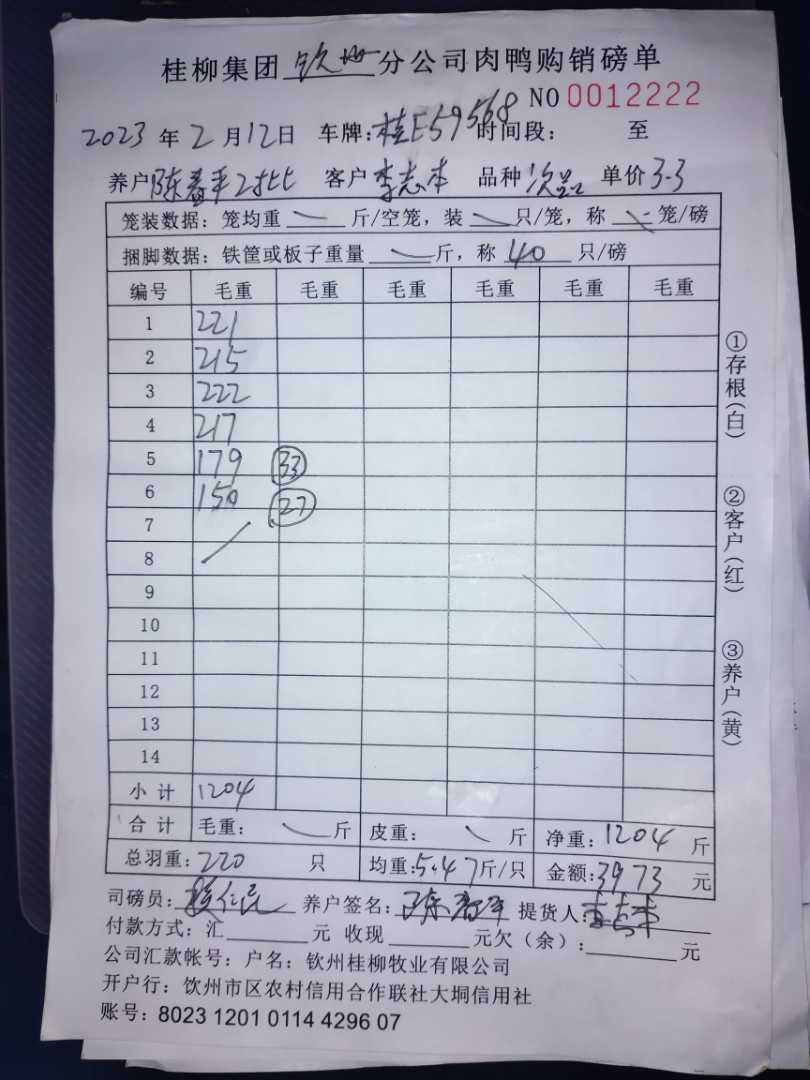 桂柳集团 钦州 分公司肉鸭购销磅单
NO 0012222
2023 年 2 月 12 日 车牌: 桂E59568 时间段: 至
养户 陈春平2批 客户 李志本 品种 次品 单价 3.3
笼装数据: 笼均重 斤/空笼, 装 只/笼, 称 笼/磅
捆脚数据: 铁筐或板子重量 斤, 称 40 只/磅
编号 毛重 毛重 毛重 毛重 毛重 毛重
1 221
2 215
3 222
4 217
5 179 33
6 150 27
7
8
9
10
11
12
13
14
小计 1204
合计 毛重: 斤 皮重: 斤 净重: 1204 斤
总羽重: 220 只 均重: 5.47 斤/只 金额: 3973 元
司磅员: 养户签名: 陈春平 提货人: 李志本
付款方式: 汇 元 收现 元欠(余): 元
公司汇款帐号: 户名: 钦州桂柳牧业有限公司
开户行: 钦州市区农村信用合作联社大垌信用社
账号: 8023 1201 0114 4296 07
①存根(白)
②客户(红)
③养户(黄)